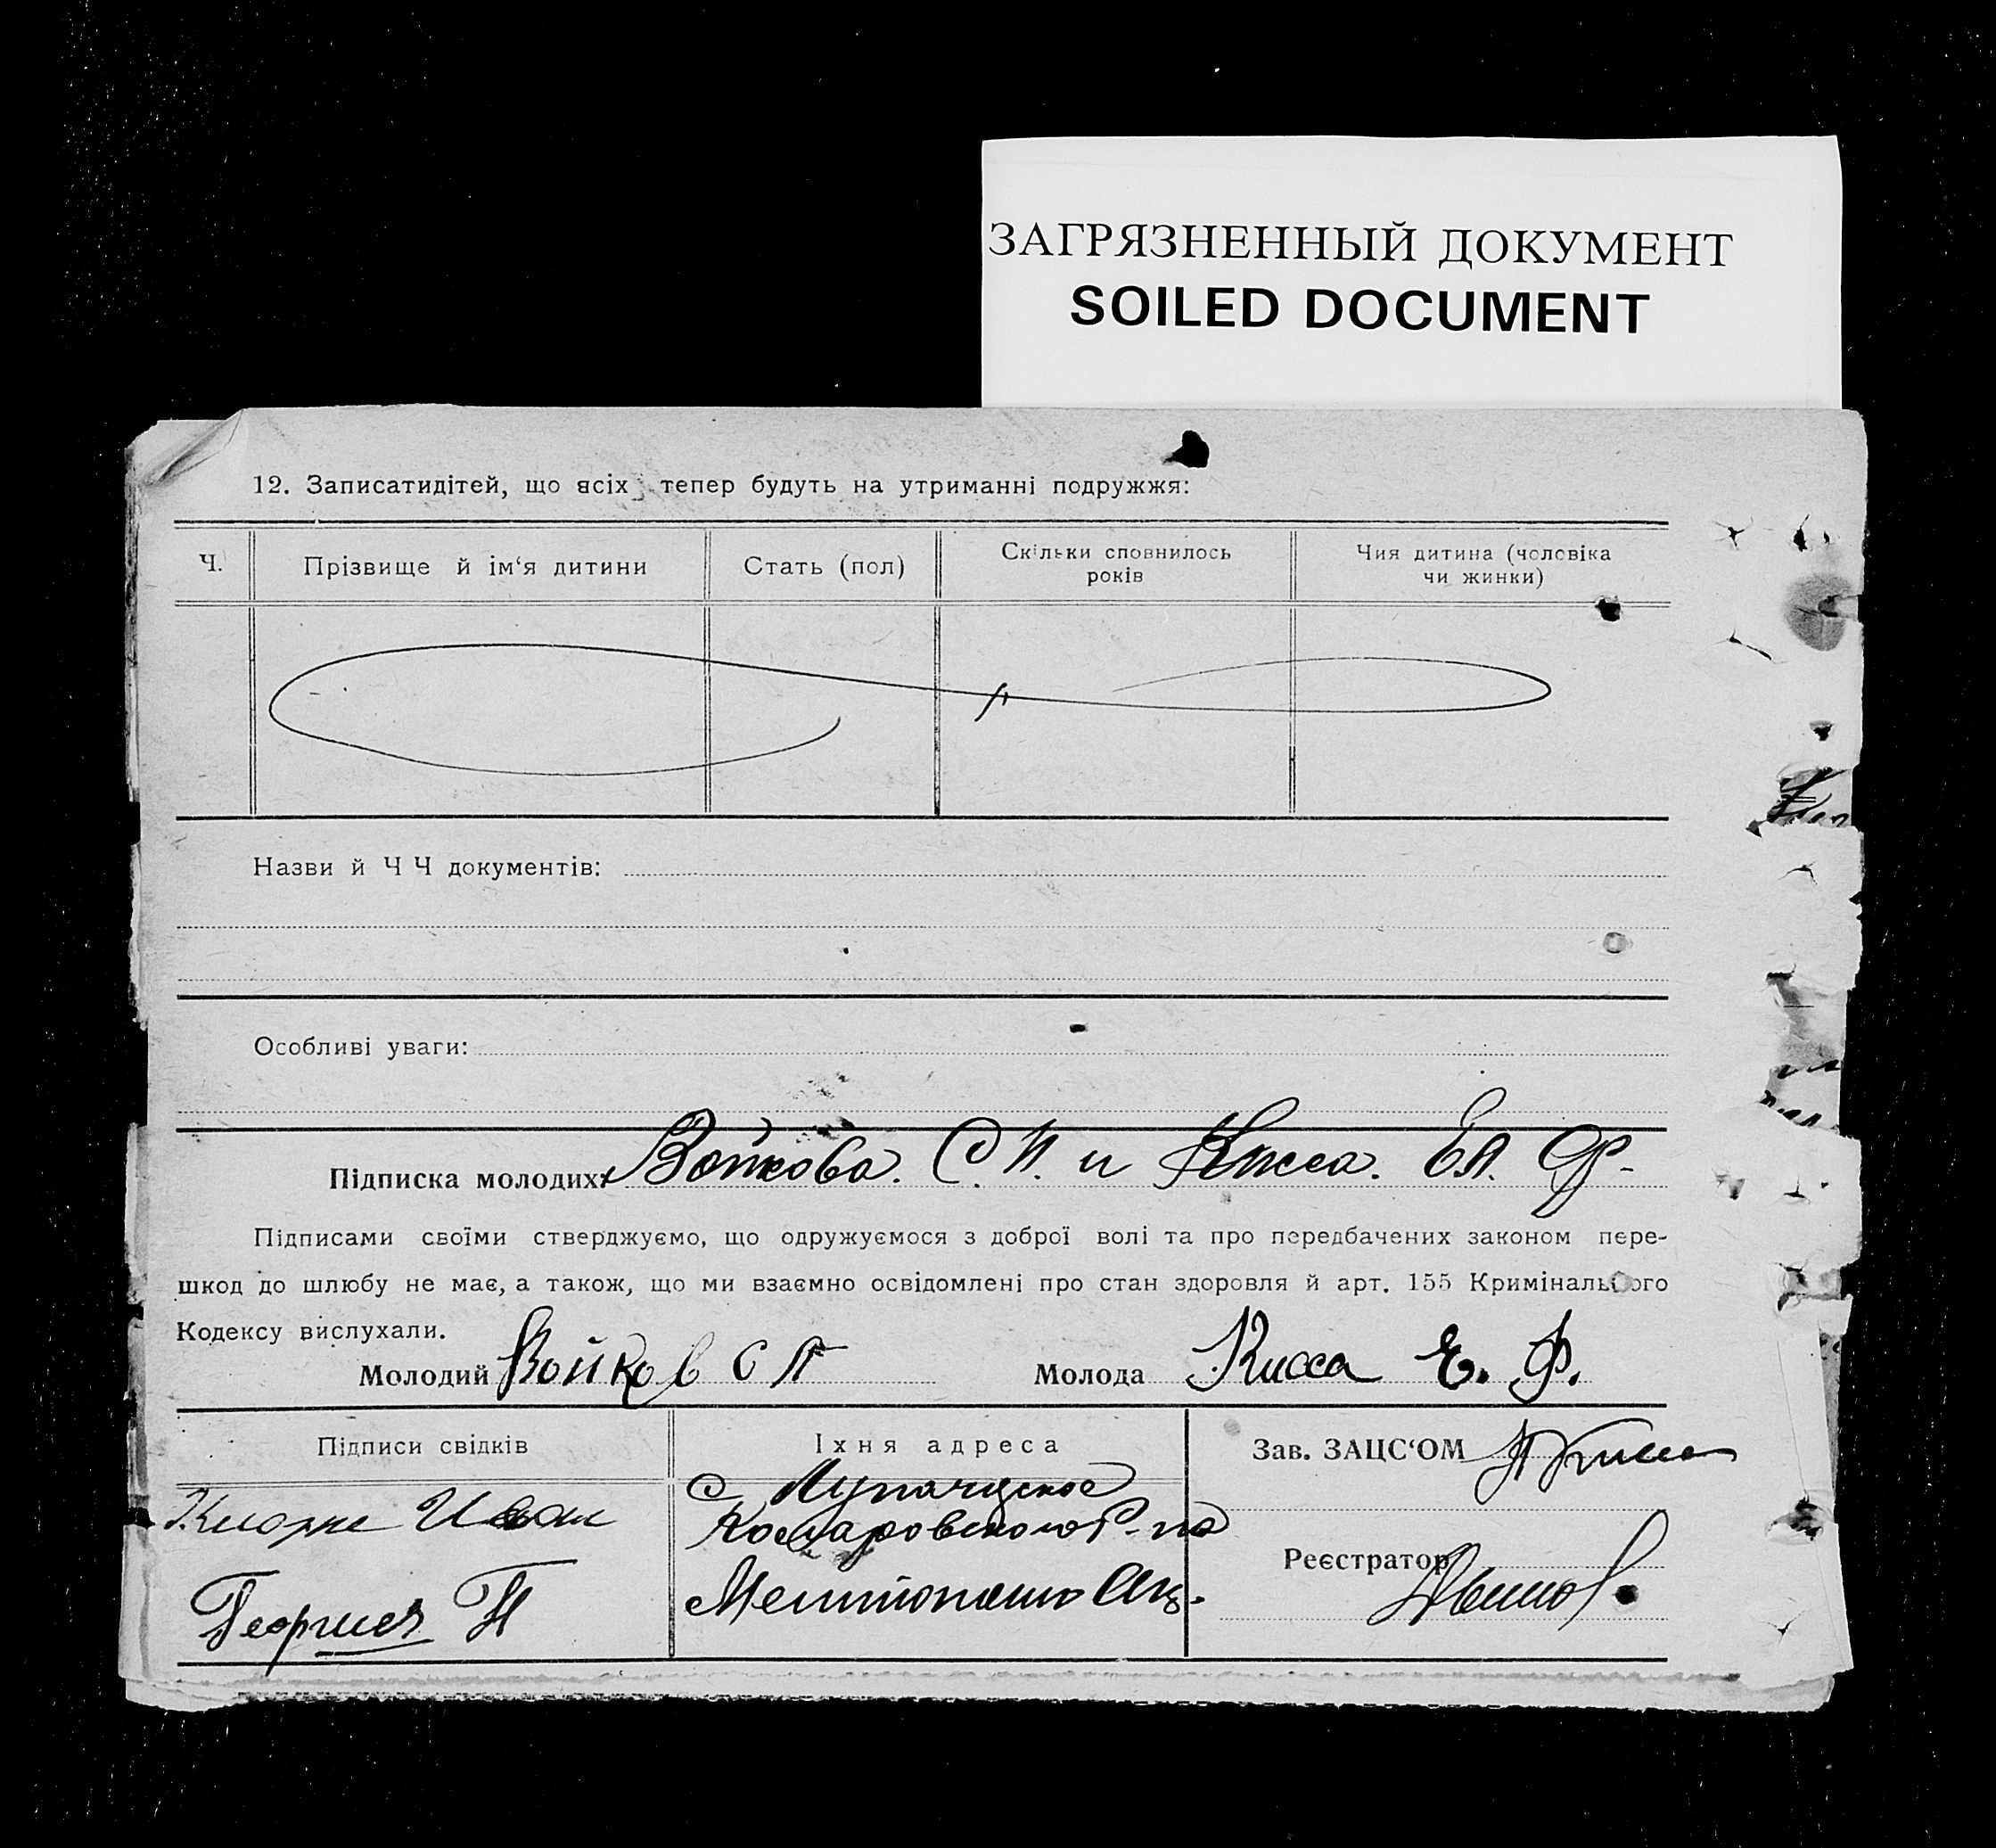 ЗАГРЯЗНЕННЫЙ ДОКУМЕНТ
SOILED DOCUMENT
12. Записатидітей, що всіх тепер будуть на утриманні подружжя:
Ч.
Прізвище й ім‘я дитини
Стать (пол)
Скільки сповнилось
років
Чия дитина (чоловіка
чи жинки)
Назви й Ч Ч документів:
Особливі уваги:
Підписка молодих: Войкова. С. П. и Кисса. Ел. Ф.
Підписами своїми стверджуємо, що одружуємося з доброї волі та про передбачених законом пере-
шкод до шлюбу не має, а також, що ми взаємно освідомлені про стан здоровля й арт. 155 Кримінального
Кодексу вислухали.
Молодий Войков С П
Молода Кисса Е. Ф.
Підписи свідків
Іхня адреса
Зав. ЗАЦС‘ОМ
С
Иван
Реєстратор